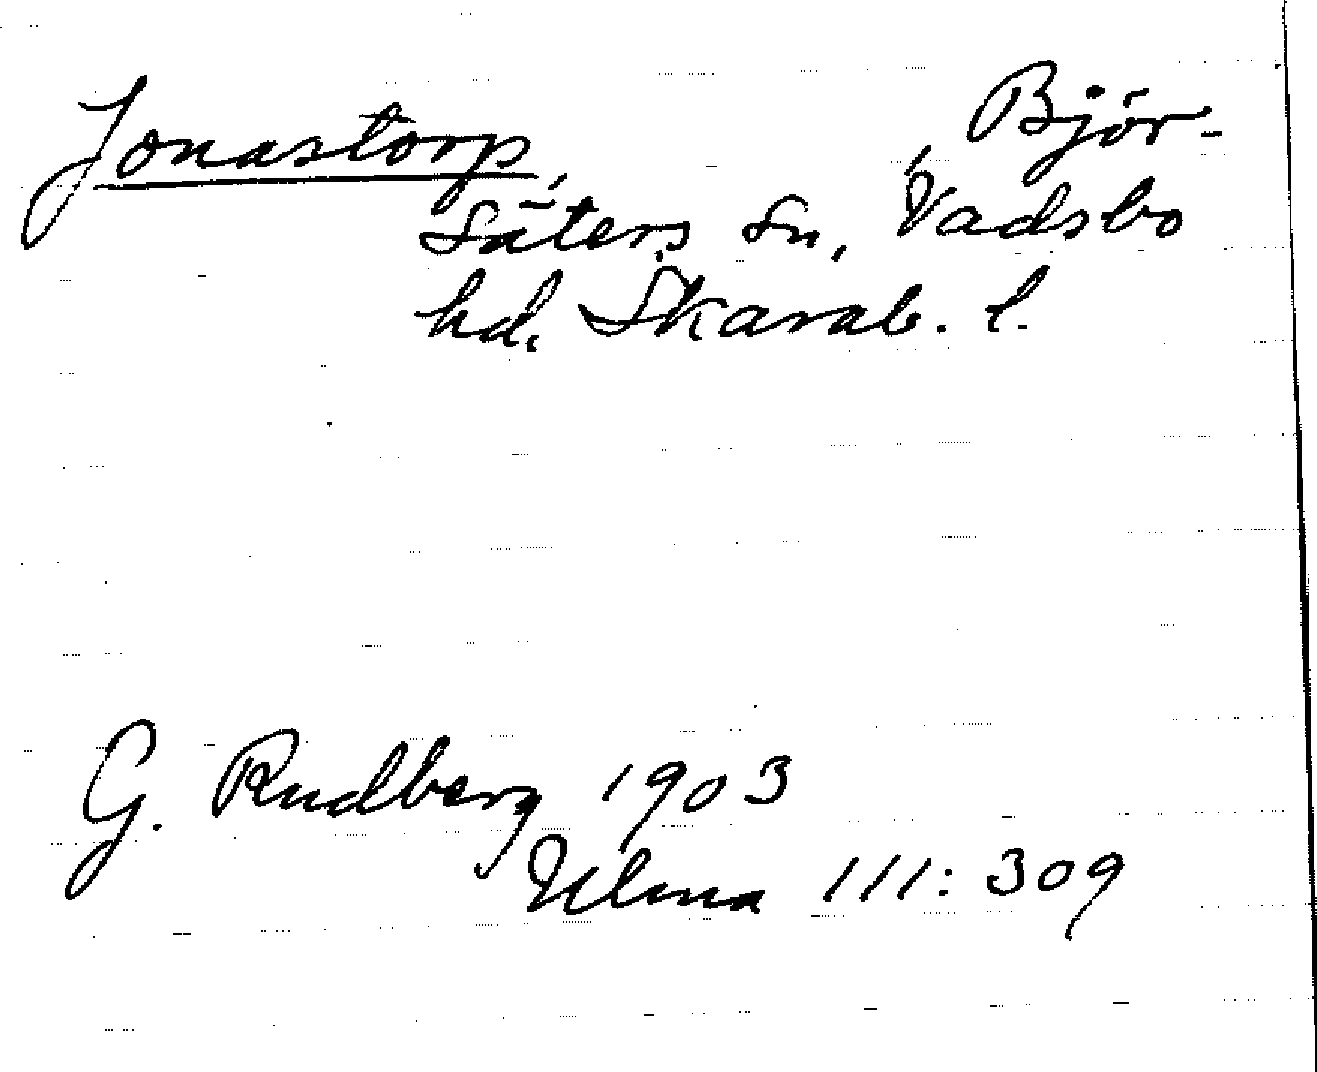 Jonastorp, Björ-
säters sn, Vadsbo
hd, Skarab. l.
G. Rudberg 1903
Ulma 111:309